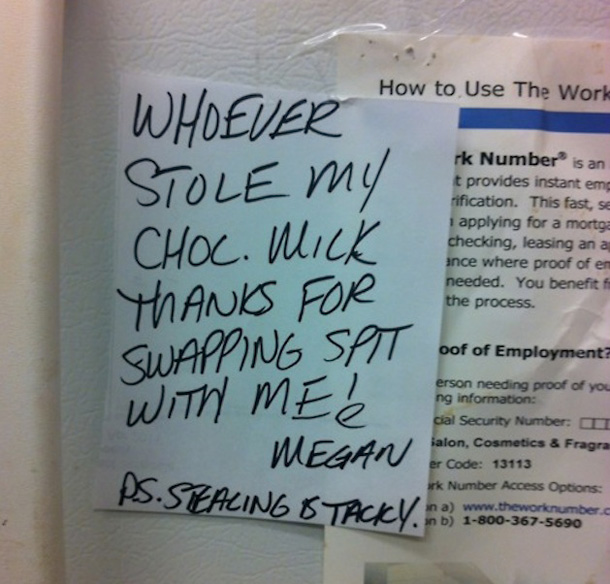 WHOEVER
STOLE MY
CHOC. MILK
THANKS FOR
SWAPPING SPIT
WITH ME!
MEGAN
P.S. STEALING IS TACKY.
How to Use The Work
rk Number® is an
t provides instant emp
rification. This fast, se
applying for a mortga
checking, leasing an a
ance where proof of em
needed. You benefit f
the process.
oof of Employment?
erson needing proof of you
ng information:
cial Security Number:
Salon, Cosmetics & Fragra
er Code: 13113
rk Number Access Options:
on a) www.theworknumber.c
on b) 1-800-367-5690